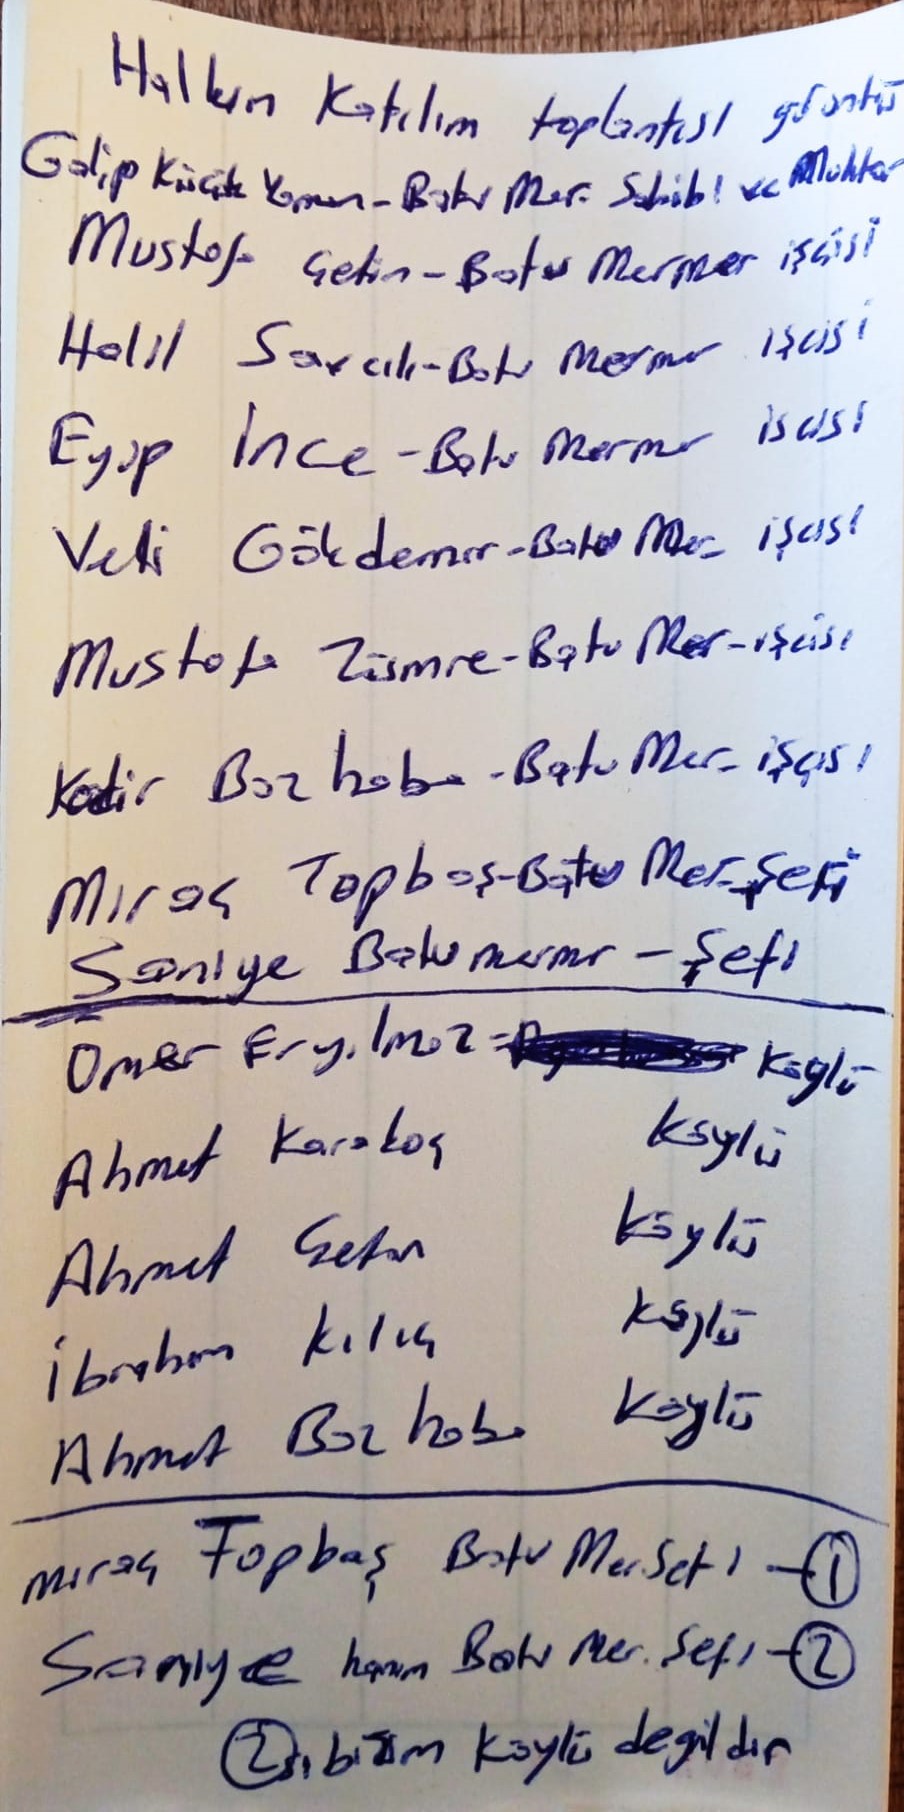 Halkın Katılım toplantısı görüntü
Galip Küçük Yaman - Batu Mer. Sahibi ve Muhtar
Mustafa Çetin - Batu Mermer işçisi
Halil Savcılı - Batu Mermer işcisi
Eyüp İnce - Batu Mermer iscisi
Veli Gökdemir - Batu Mer- işcisi
Mustafa - Batu Mer - işcisi
Kadir Boz haba - Batu Mer- işçisi
Miraç Topbaş - Batu Mer- Şefi
Saniye Batu mermer - Şefi
Ömer Eryılmaz = Köylü
Ahmet Karakoç Köylü
Ahmet Çetin Köylü
İbrahim Kılıç Köylü
Ahmet Boz haba Köylü
Miraç Topbaş Batu Mer. Sefi - 1
Saniye hanım Batu Mer. Sefi - 2
2si bizim Köylü degildir